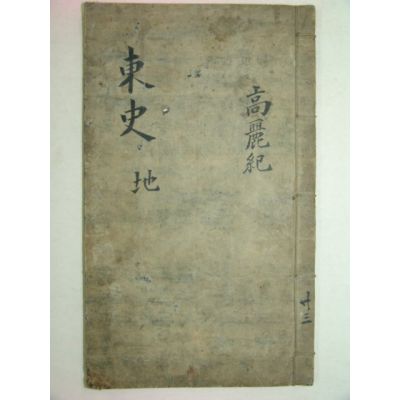 東史 地
高麗紀
卄三